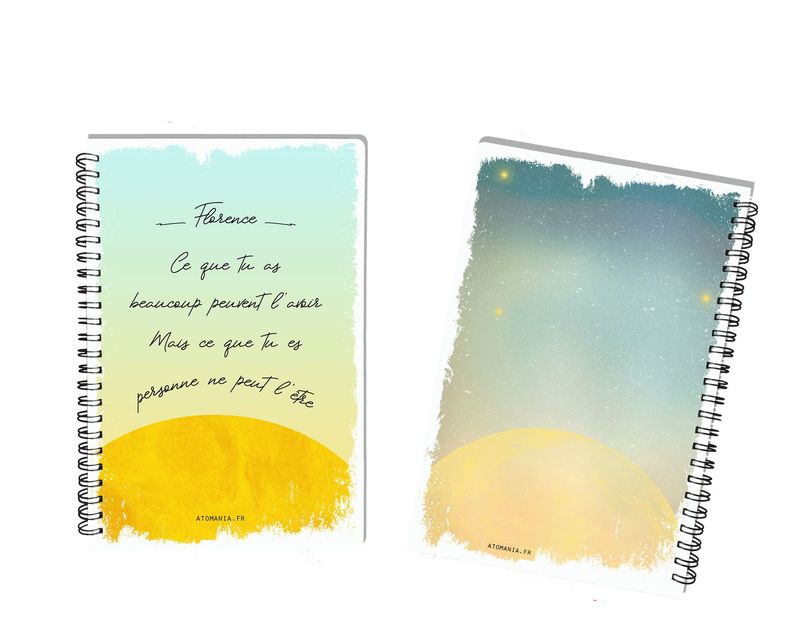 Florence
Ce que tu as
beaucoup peuvent l'avoir
Mais ce que tu es
personne ne peut l'être
ATOMANIA.FR
ATOMANIA.FR